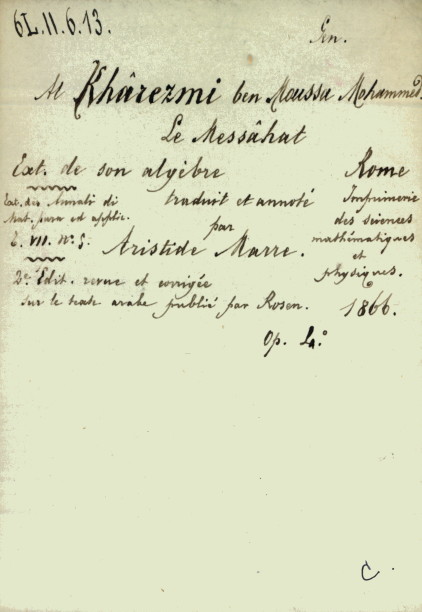 6L.II.6.13.
En.
Al Khârezmi ben Moussa Mohammed.
Le Messâhat
Ext. de son algèbre
Rome
Ext. des Annali di
traduit et annoté
Imprimerie
Mat. pura ed applic.
par
des sciences
T. VII. Nº 5.
Aristide Marre.
mathématiques
et
2e Edit. revue et corrigée
physiques.
sur le texte arabe publié par Rosen.
1866.
Op. 4.º
C